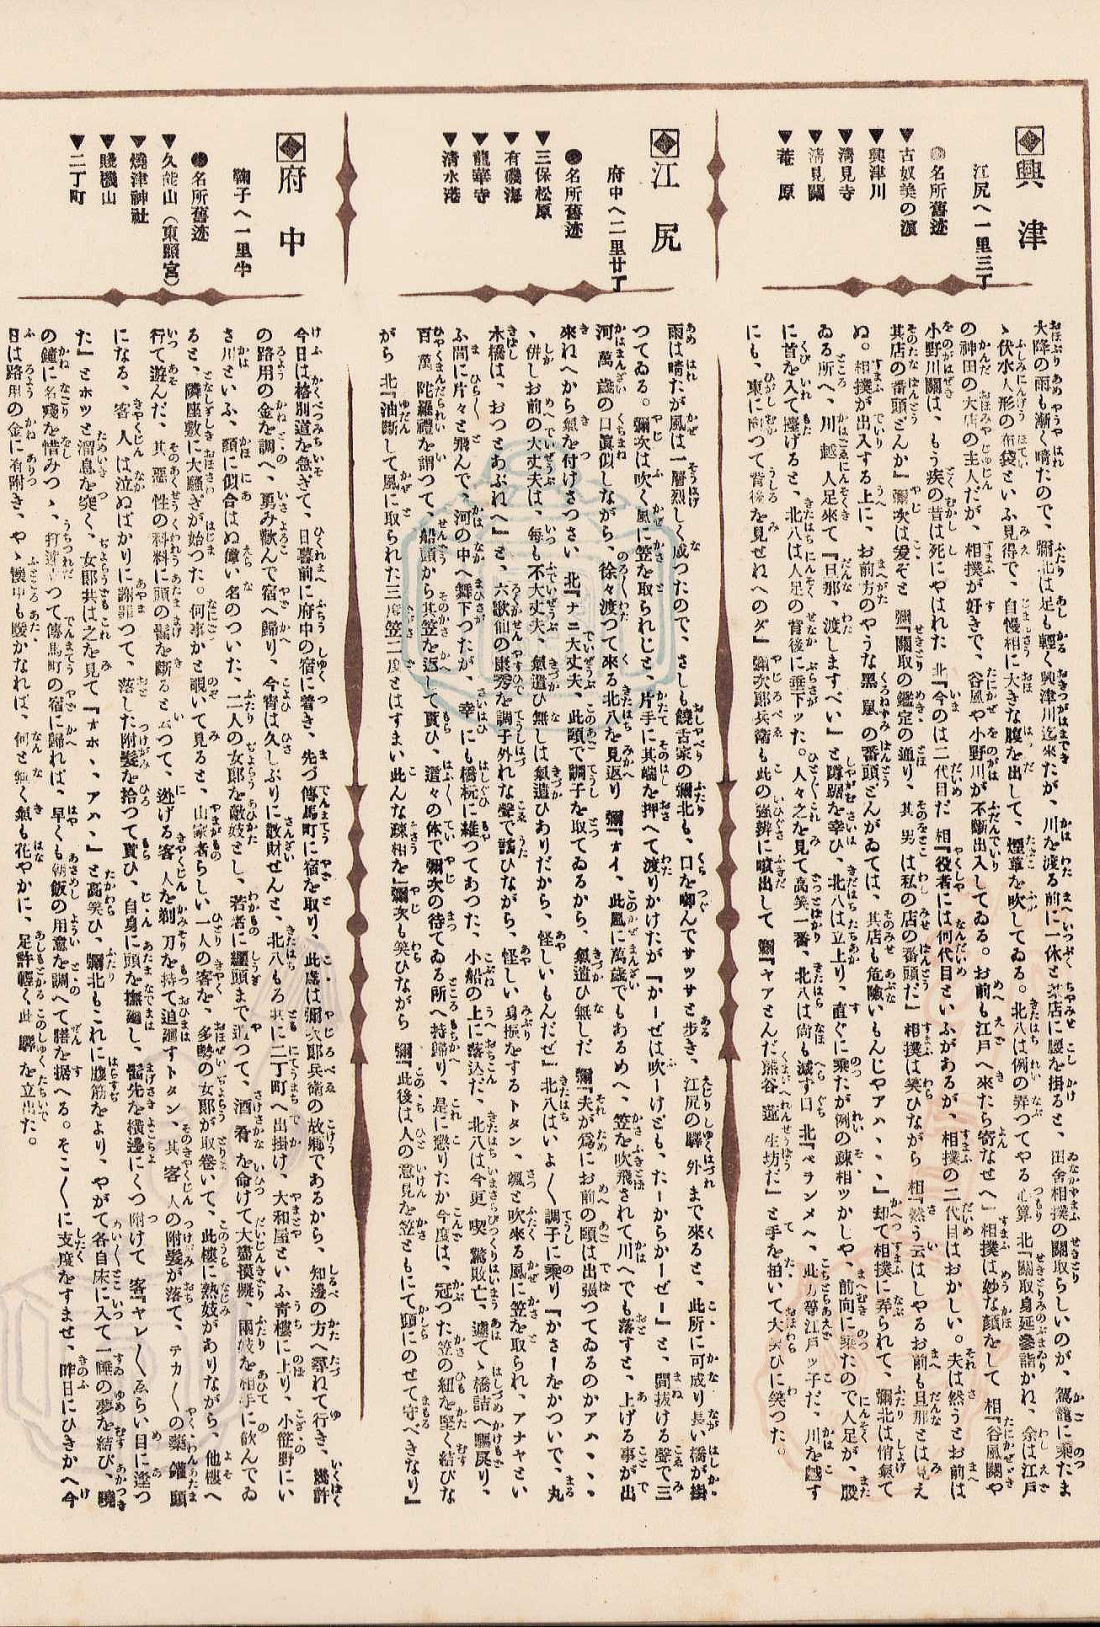 興津
江尻へ一里三丁
●名所舊迹
▼古奴美の濵
▼興津川
▼清見寺
▼清見關
▼菴原
大降の雨も漸く晴たので、彌北は足も輕く興津川迄來たが、川を渡る前に一休と茶店に腰を掛ると、田舍相撲の關取らしいのが、駕籠に乘たま
ゝ伏水人形の布袋といふ見得で、自慢相に大きな腹を出して、煙草を吹してゐる。北八は例の弄つてやる心算 北『關取身延參詣かね、余は江戸
の神田の大店の主人だが、相撲が好きで、谷風や小野川が不斷出入してゐる。お前も江戸へ來たら寄なせへ』相撲は妙な顏をして 相『谷風關や
小野川關は、もう疾の昔は死にやはれた 北『今のは二代目だ 相『役者には何代目といふがあるが、相撲の二代目はおかしい。夫は然うとお前は
其店の番頭どんか』彌次は爰ぞと 彌『關取の鑑定の通り、其男は私の店の番頭だ』相撲は笑ひながら 相『然う云はしやるお前も旦那とは見え
ぬ。相撲が出入する上に、お前方のやうな黑鼠の番頭どんがゐては、其店も危險いもんじやアハヽヽ』却て相撲に弄られて、彌北は悄氣て
ゐる所へ、川越人足來て『旦那、渡しますべい』と蹲踞を幸ひ、北八は立上り、直ぐに乘たが例の疎相ツかしや、前向に乘たので人足が、股
に首を入て擡げると、北八は人足の背後に垂下ッた。人々之を見て高笑一番、北八は尚も減ず口 北『ベランメへ、此方等江戸ッ子だ、川を越す
にも、東に向つて背後を見せれへのダ』彌次郎兵衛も此の強辨に噴出して 彌『ヤアとんだ熊谷蓮生坊だ』と手を拍いて大ひに笑つた。
江尻
府中へ二里廿丁
●名所舊迹
▼三保松原
▼有磯海
▼龍華寺
▼清水港
雨は晴たが風は一層烈しく成つたので、さしも饒舌家の彌北も、口を噤んでサッサと歩き、江尻の驛外まで來ると、此所に可成り長い橋が掛
つてゐる。彌次は吹く風に笠を取られじと、片手に其端を押へて渡りかけたが『かーぜは吹ーけども、たーからかーぜー』と、間拔ける聲で三
河萬歳の口眞似しながら、徐々渡つて來る北八を見返り 彌『オイ、此風に萬歳でもあるめへ、笠を吹飛されて川へでも落すと、上げる事が出
來ねへから氣を付けさつさい 北『ナニ大丈夫、此頤で調子を取てゐるから、氣遣ひ無しだ 彌『夫が爲にお前の頤は出張つてゐるのかアハヽヽヽ
、併しお前の大丈夫は、毎も不大丈夫、氣遣ひ無しは氣遣ひありだから、怪しいもんだゼ』北八はいよ〳〵調子に乘り『かさーをかついで、丸
木橋は、おつとあぶねへ』と、六歌仙の康秀を調子外れな聲で謠ひながら、怪しい身振をするトタン、颯と吹來る風に笠を取られ、アナヤとい
ふ間に片々と飛んで、河の中へ舞下つたが、幸にも橋杭に維つてあつた、小船の上に落込だ、北八は今更喫驚敗亡、遽てゝ橋詰へ驅戻り、
百萬陀羅禮を謂つて、船頭から其笠を返して貰ひ、這々の体で彌次の待てゐる所へ持歸り、是に懲りたか今度は、冠つた笠の紐を堅く結びな
がら 北『油斷して風に取られた三度笠二度とはすまい此んな疎相を』彌次も笑ひながら 彌『此後は人の意見を笠ともにて頭にのせて守べきなり』
府中
鞠子へ一里半
●名所舊迹
▼久能山（東照宮）
▼燒津神社
▼賤機山
▼二丁町
今日は格別道を急ぎて、日暮前に府中の宿に着き、先づ傳馬町に宿を取り、此處は彌次郎兵衛の故郷であるから、知邊の方へ尋ねて行き、幾許
の路用の金を調へ、勇み歡んで宿へ歸り、今宵は久しぶりに散財せんと、北八もろ共に二丁町へ出掛け、大和屋といふ青樓に上り、小笹野にい
さ川といふ、顏に似合はぬ偉い名のついた、二人の女郎を敵妓とし、若者に纒頭まで遣つて、酒肴を命けて大盡摸擬、兩妓を相手に飲んでゐ
ると、隣座敷に大騒ぎが始つた。何事かと覗いて見ると、山家者らしい一人の客を、多勢の女郎が取卷いて、此樓に熟妓がありながら、他樓へ
行て遊んだ、其惡性の科料に頭の髷を斷るとぶつて、迯げる客人を剃刀を持て追廻すトタン、其客人の附髮が落て、テカ〳〵の藥鑵頭
になる、客人は泣ぬばかりに謝罪つて、落した附髮を拾つて貰ひ、自身に頭を撫廻し、髷先を横邊にくつ附けて 客『ヤレ〳〵ゑらい目に逢つ
た』とホッと溜息を突く、女郎共は之を見て『オホヽヽアハヽ』と高笑ひ、彌北もこれに腹筋をより、やがて各自床に入て一睡の夢を結び、曉
の鐘に名殘を惜みつゝ、打連立つて傳馬町の宿に歸れば、早くも朝飯の用意を調へて膳を据へる。そこ〳〵に支度をすませ、昨日にひきかへ今
日は路用の金に有附き、やゝ懷中も暖かなれば、何と無く氣も花やかに、足許輕く此驛を立出た。